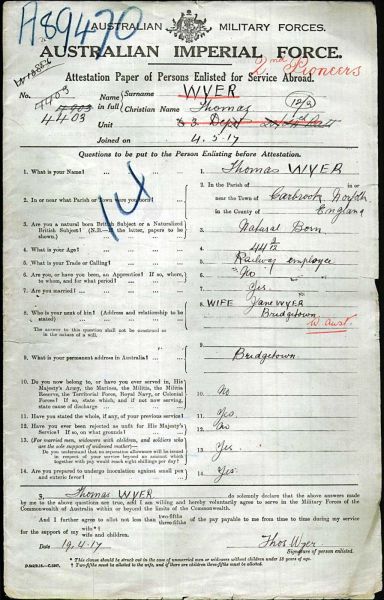 A89470
AUSTRALIAN MILITARY FORCES.
AUSTRALIAN IMPERIAL FORCE.
2nd Pioneers
Attestation Paper of Persons Enlisted for Service Abroad.
No. 4403
4403
4403
Name in full
Surname WYER
Christian Name Thomas
Unit
Joined on 4.5.17
Questions to be put to the Person Enlisting before Attestation.
1. What is your Name? 1. Thomas WYER
2. In or near what Parish or Town were you born? 2. In the Parish of Carbrook Norfolk in or
near the Town of
in the County of England
3. Are you a natural born British Subject or a Naturalized British Subject? (N.B.—If the latter, papers to be shown.) 3. Natural Born
4. What is your Age? 4. 44
5. What is your Trade or Calling? 5. Railway employee
6. Are you, or have you been, an Apprentice? If so, where, to whom, and for what period? 6. No
7. Are you married? 7. Yes
8. Who is your next of kin? (Address and relationship to be stated) 8. WIFE Jane WYER
Bridgetown
W. Aust.
The answer to this question shall not be construed as in the nature of a will.
9. What is your permanent address in Australia? 9. Bridgetown
10. Do you now belong to, or have you ever served in, His Majesty's Army, the Marines, the Militia, the Militia Reserve, the Territorial Force, Royal Navy, or Colonial Forces? If so, state which, and if not now serving, state cause of discharge 10. No
11. Have you stated the whole, if any, of your previous service? 11. Yes
12. Have you ever been rejected as unfit for His Majesty's Service? If so, on what grounds? 12. No
13. (For married men, widowers with children, and soldiers who are the sole support of widowed mother)—
Do you understand that no separation allowance will be issued in respect of your service beyond an amount which together with pay would reach eight shillings per day? 13. Yes
14. Are you prepared to undergo inoculation against small pox and enteric fever? 14. Yes
3. Thomas WYER do solemnly declare that the above answers made
by me to the above questions are true, and I am willing and hereby voluntarily agree to serve in the Military Forces of the
Commonwealth of Australia within or beyond the limits of the Commonwealth.
And I further agree to allot not less than two-fifths three-fifths of the pay payable to me from time to time during my service
for the support of my wife* wife and children.
Date 19.4.17
Thos Wyer
Signature of person enlisted.
* This clause should be struck out in the case of unmarried men or widowers without children under 18 years of age.
† Two-fifths must be allotted to the wife, and if there are children three-fifths must be allotted.